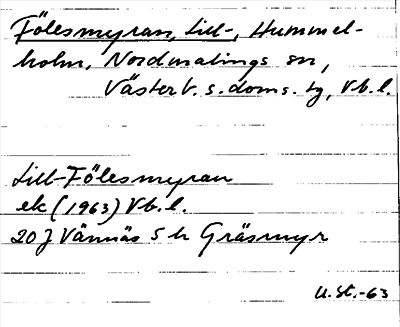 Fölesmyran, Lill-, Hummel-
holm, Nordmalings sn,
Västerb. s. doms. tg, Vb. l.
Lill-Fölesmyran
ek (1963) Vb. l.
20J Vännäs 5 h Gräsmyr
U. St. -63